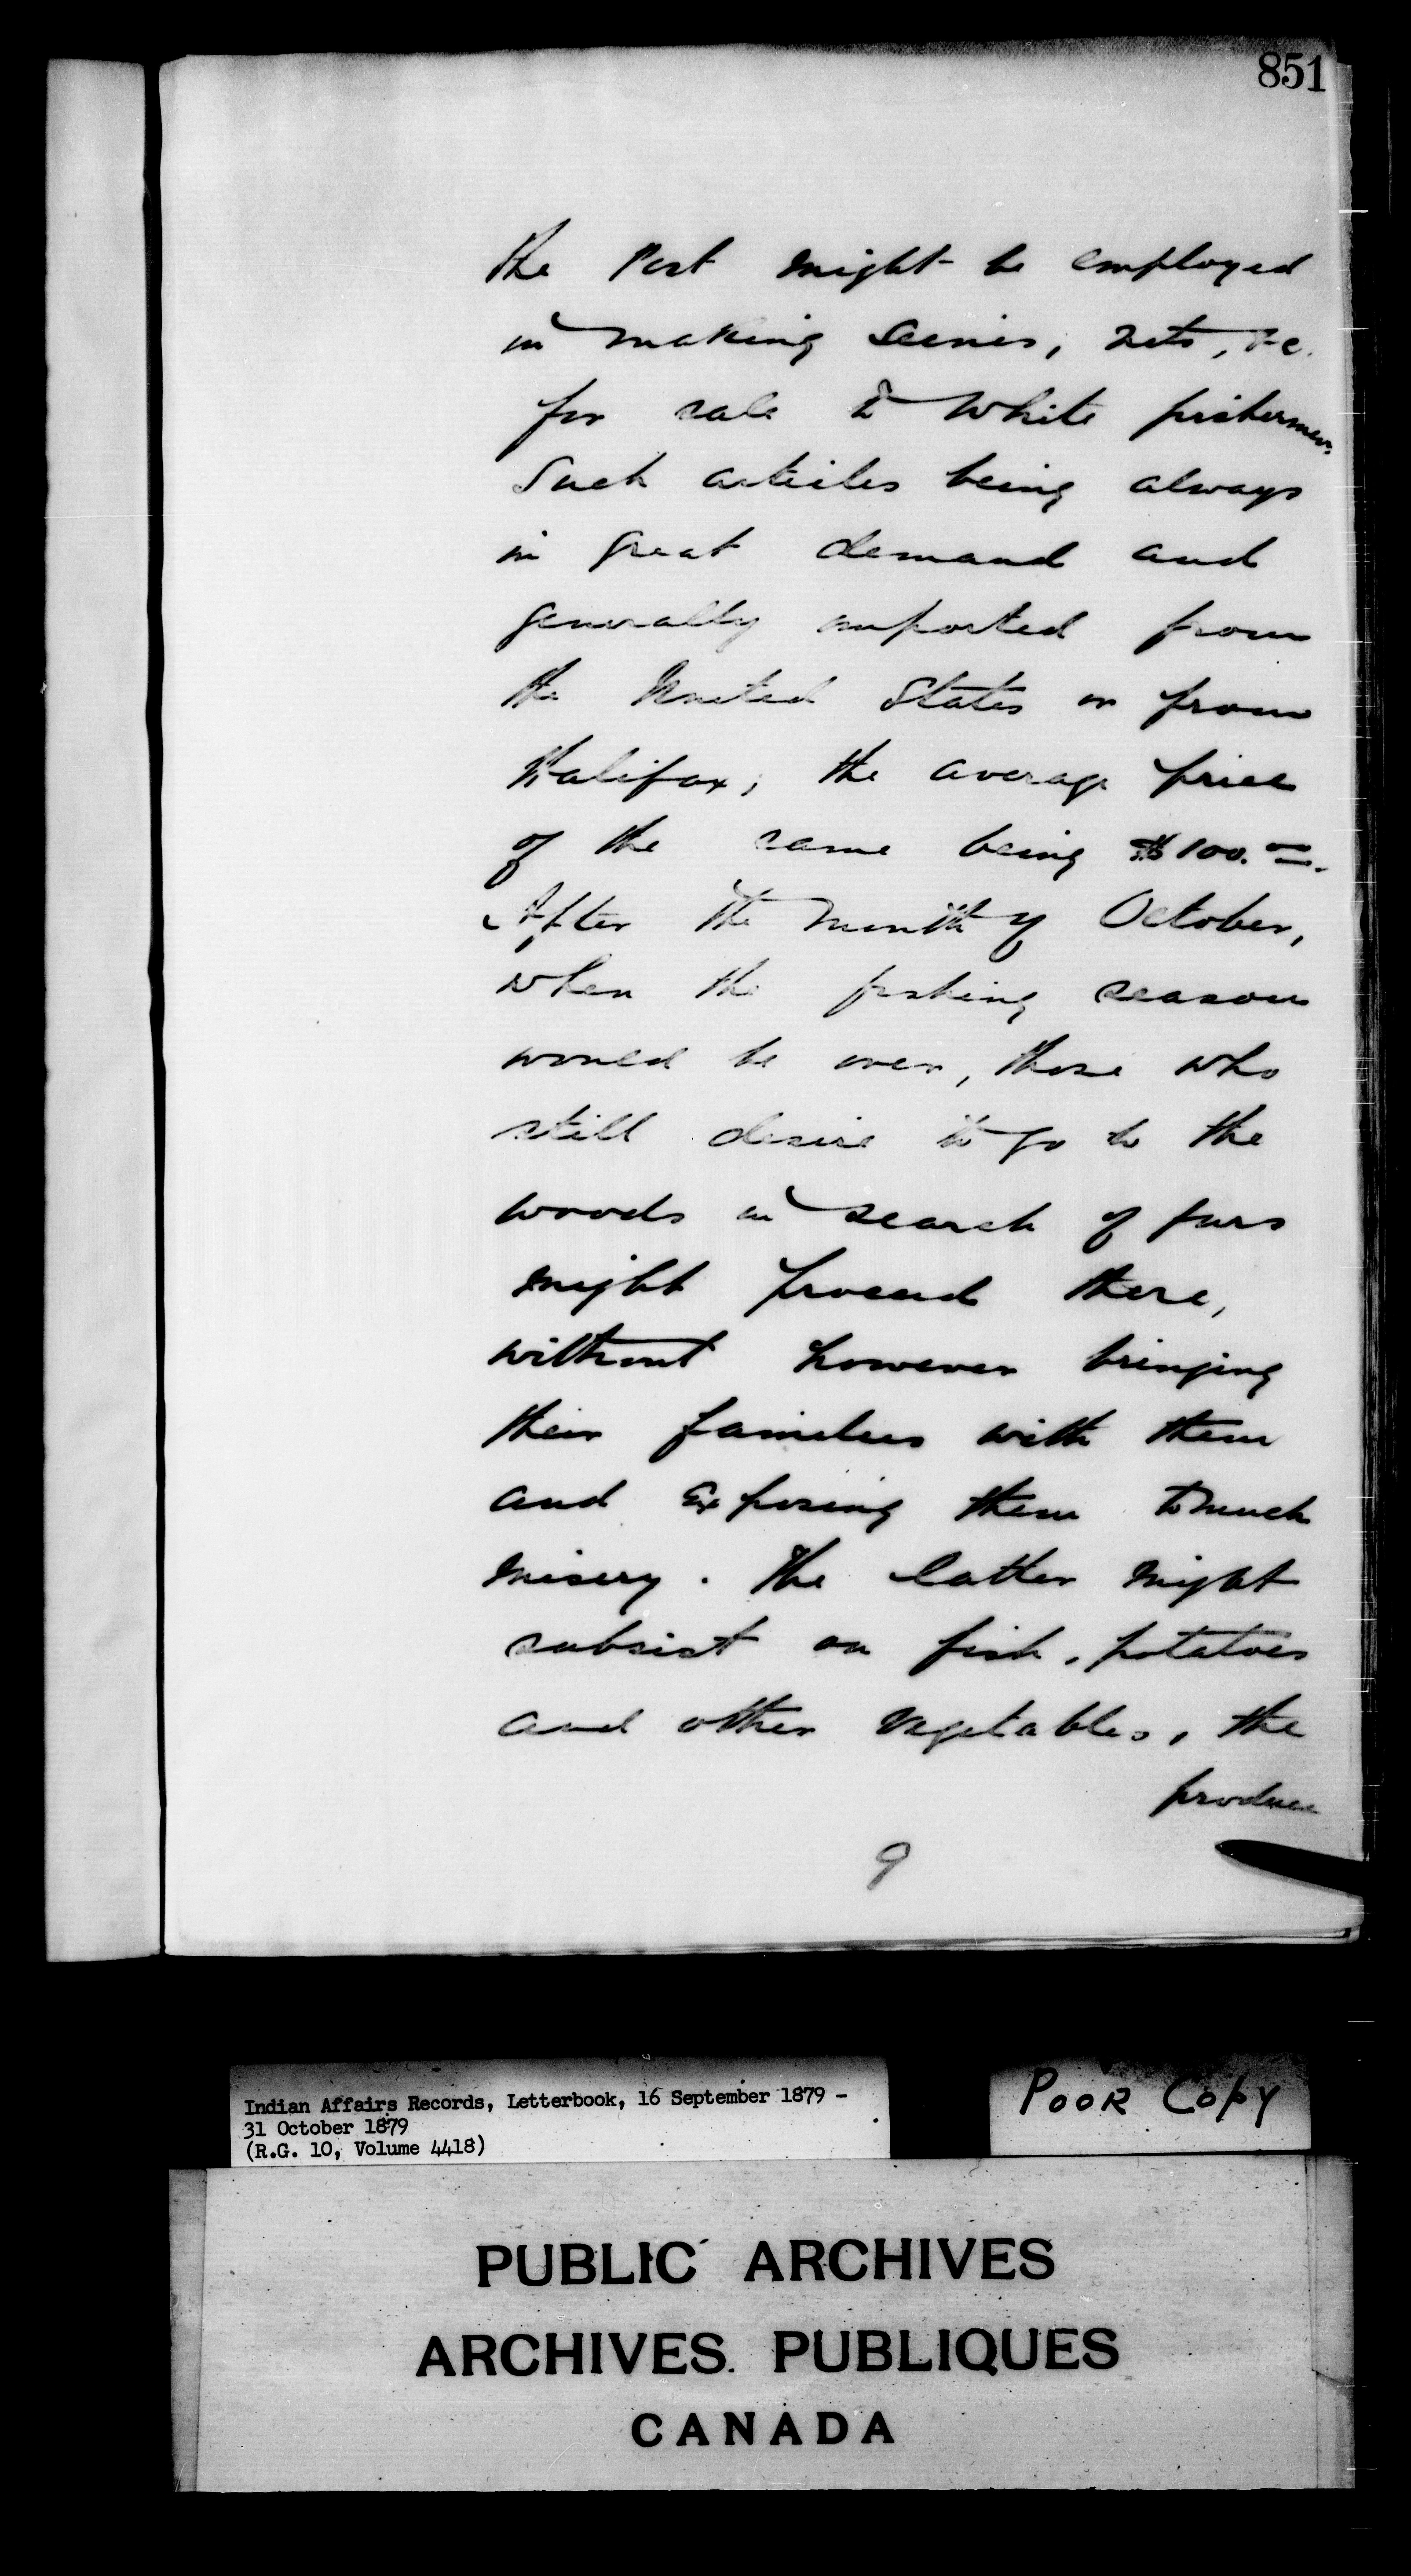 851
the Post might be employed
in making seines, nets, &c.
for sale to White fishermen,
Such articles being always
in great demand and
generally imported from
the United States or from
Halifax; the average price
of the same being $100.00.
After the month of October,
when the fishing season
would be over, those who
still desire to go to the
woods in search of furs
might proceed there,
without however bringing
their families with them
and exposing them to much
misery. The latter might
subsist on fish, potatoes
and other vegetables, the
produce
9
Indian Affairs Records, Letterbook, 16 September 1879 -
31 October 1879
(R.G. 10, Volume 4418)
POOR COPY
PUBLIC ARCHIVES
ARCHIVES PUBLIQUES
CANADA